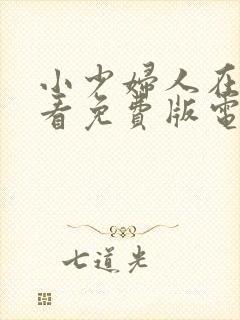 小少婦人在
看免費版電
七道光